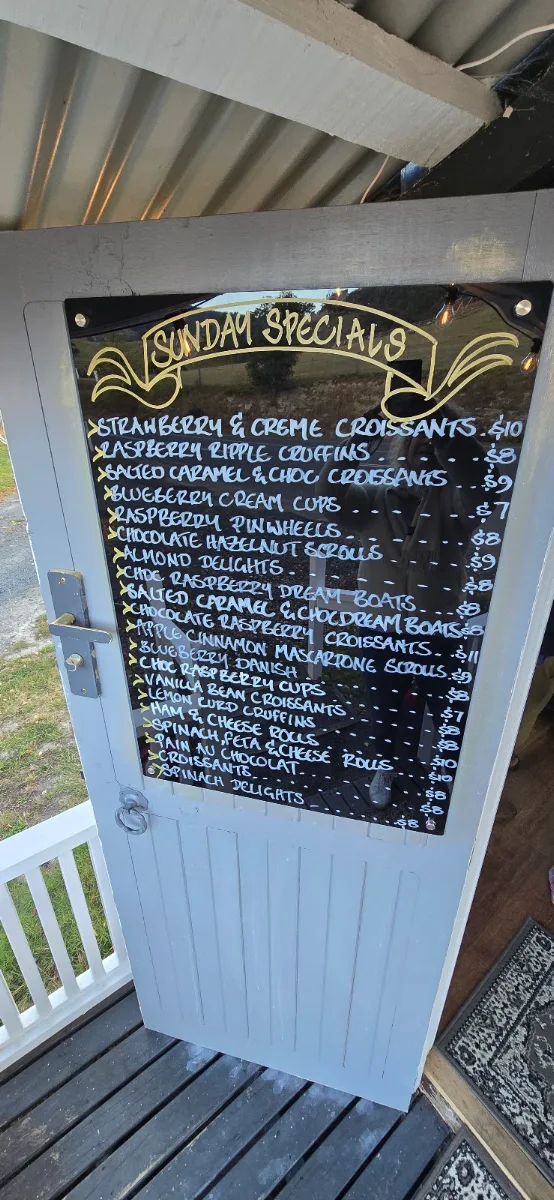 SUNDAY SPECIALS
STRAWBERRY & CREME CROISSANTS . $10
RASPBERRY RIPPLE CRUFFINS . . . . $8
SALTED CARAMEL & CHOC CROISSANTS . . $9
BLUEBERRY CREAM CUPS . . . . . $7
RASPBERRY PINWHEELS . . . . . $8
CHOCOLATE HAZELNUT SCROLLS . . . . $9
ALMOND DELIGHTS . . . . . . $8
CHOC RASPBERRY DREAM BOATS . . . $8
SALTED CARAMEL & CHOC DREAM BOATS $8
CHOCOLATE RASPBERRY CROISSANTS . . $11
APPLE CINNAMON MASCARPONE SCROLLS . . $9
BLUEBERRY DANISH . . . . . . $8
CHOC RASPBERRY CUPS . . . . . $7
VANILLA BEAN CROISSANTS . . . . $8
LEMON CURD CRUFFINS . . . . . $8
HAM & CHEESE ROLLS . . . . . $10
SPINACH, FETA & CHEESE ROLLS . . $10
PAIN AU CHOCOLAT . . . . . $8
CROISSANTS . . . . . . $8
SPINACH DELIGHTS . . . . . $8